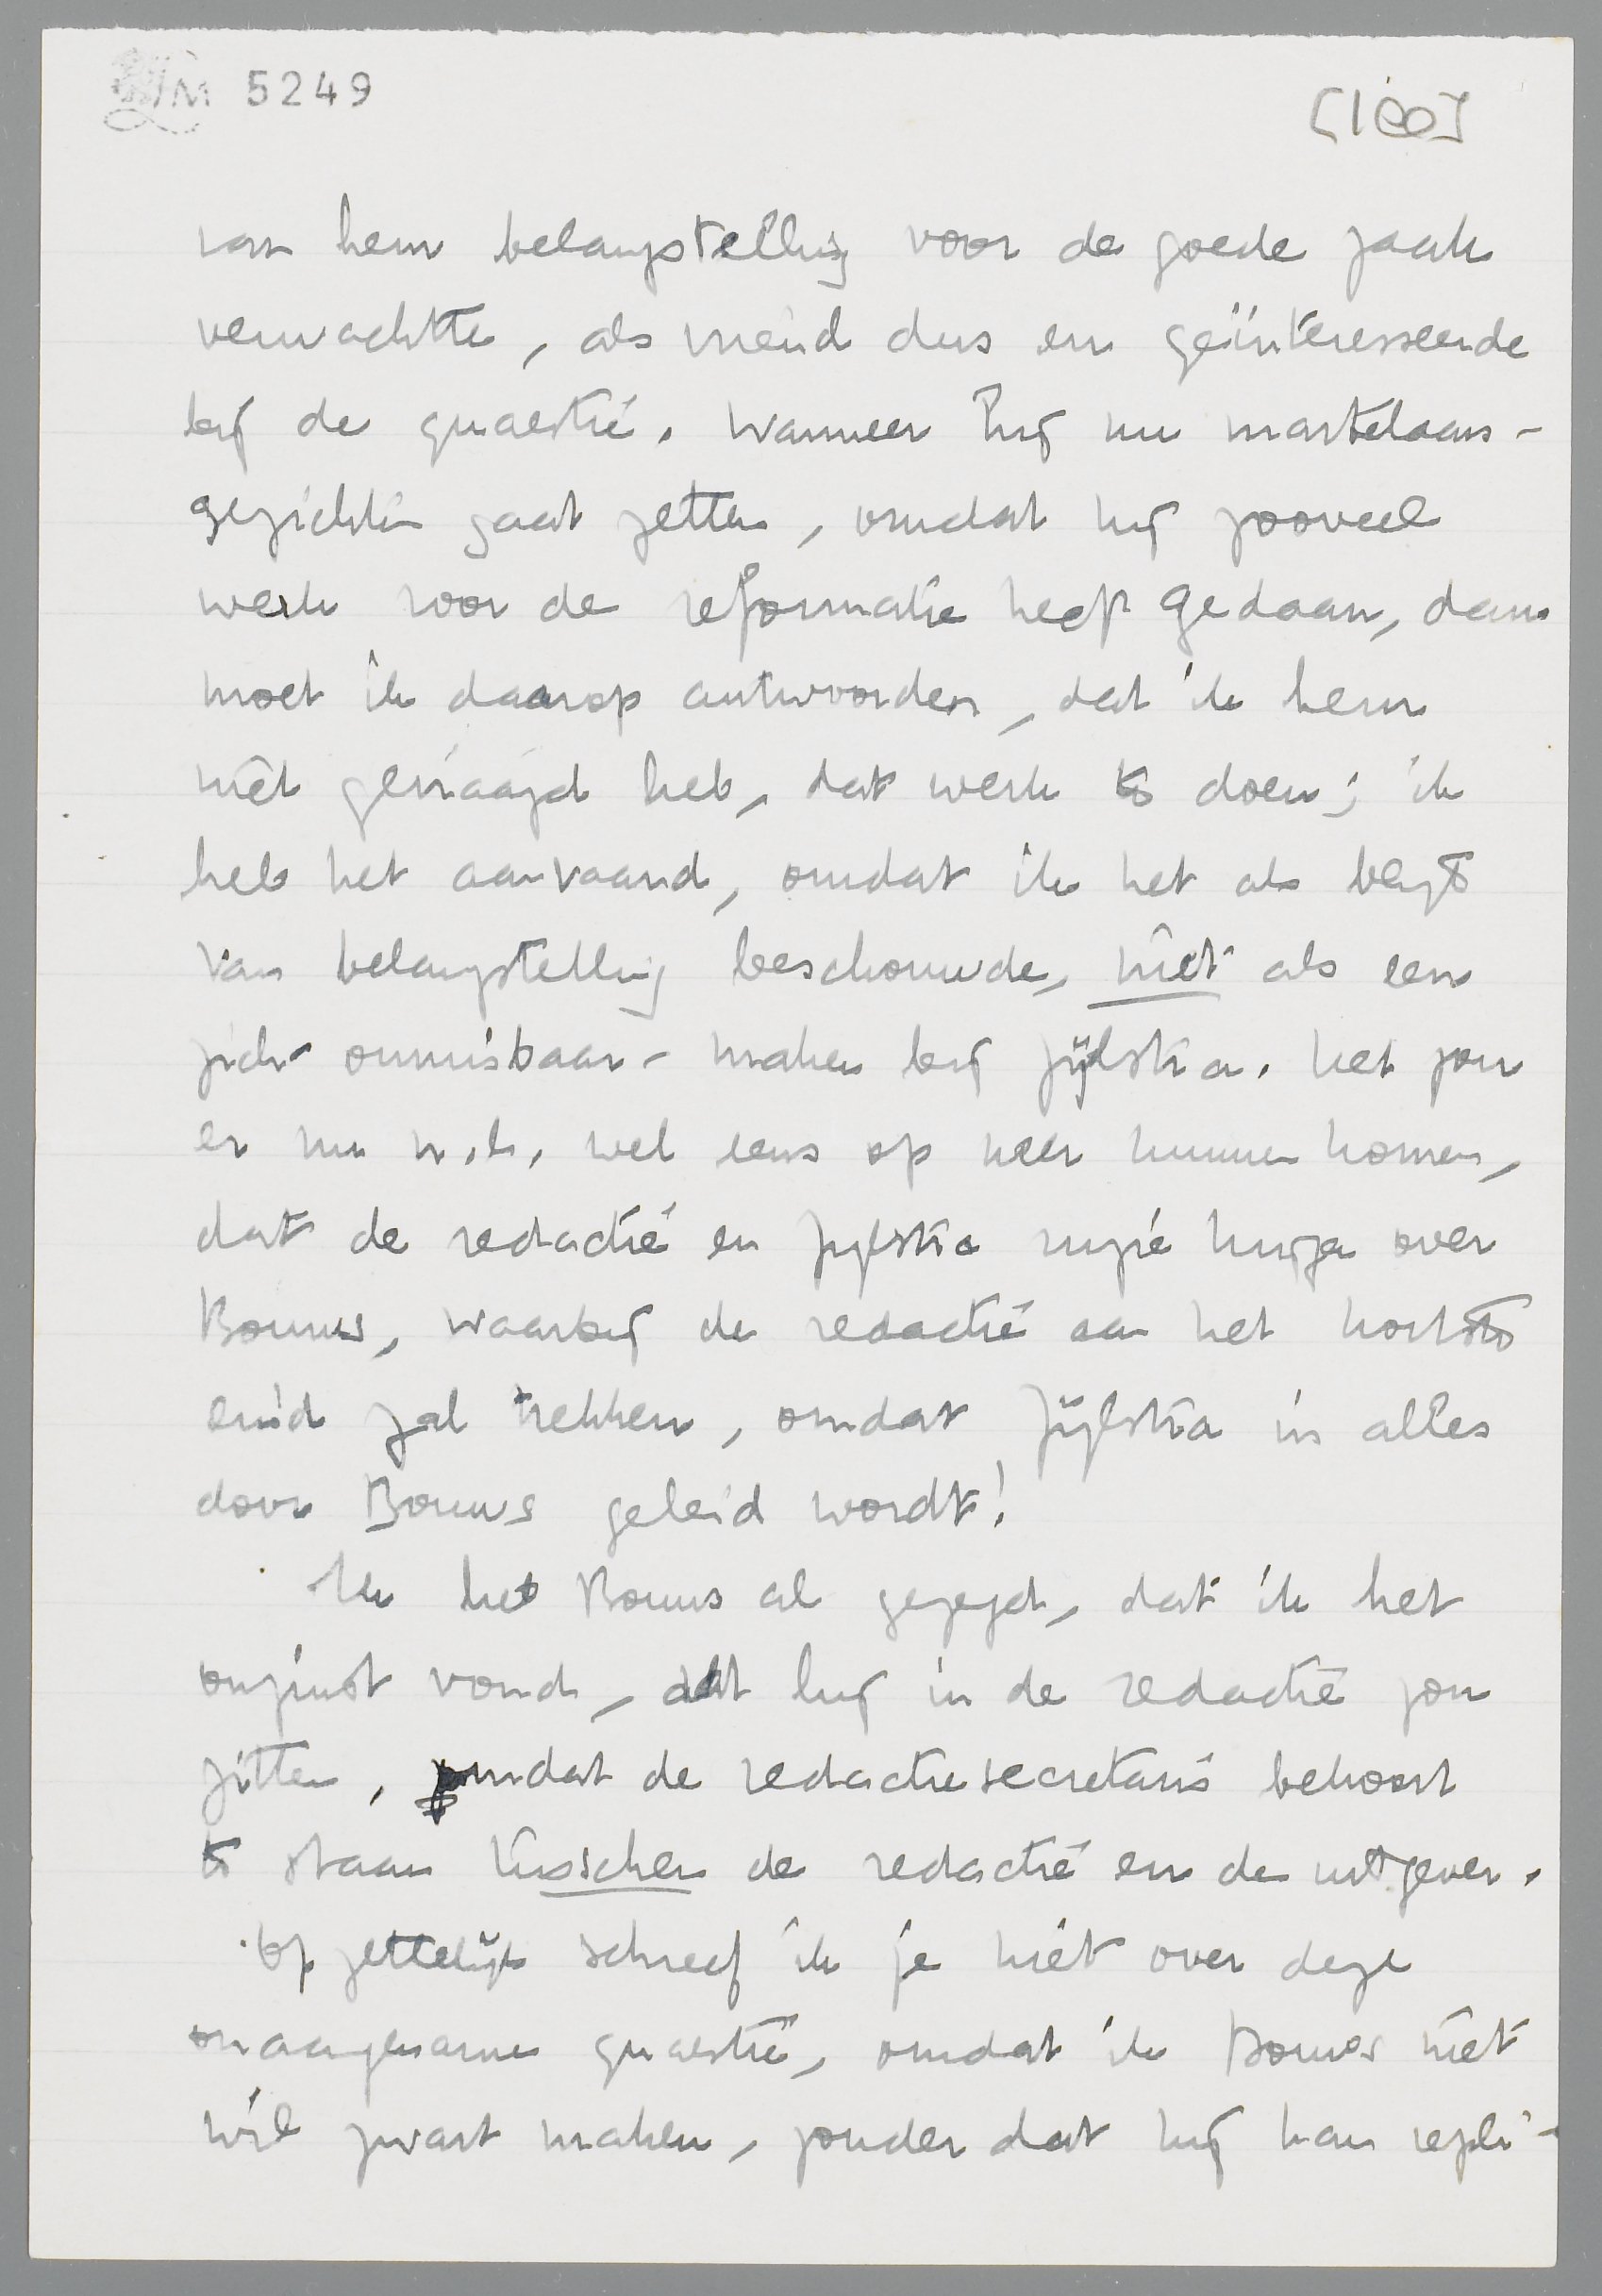 LM 5249
[100]
van hem belangstelling voor de goede zaak
verwachtte, als vriend dus en geïnteresseerde
bij de quaestie. Wanneer hij nu martelaars-
gezichten gaat zetten, omdat hij zooveel
werk voor de reformatie heeft gedaan, dan
moet ik daarop antwoorden, dat ik hem
niet gevraagd heb, dat werk te doen; ik
heb het aanvaard, omdat ik het als blijk
van belangstelling beschouwde, niet als een
zich-onmisbaar-maken bij Zijlstra. Het zou
er nu n.l. wel eens op neer kunnen komen,
dat de redactie en Zijlstra ruzie krijgen over
Bouws, waarbij de redactie aan het kortste
eind zal trekken, omdat Zijlstra in alles
door Bouws geleid wordt!
Ik heb Bouws al gezegd, dat ik het
onjuist vond, dat hij in de redactie zou
zitten, omdat de redactiesecretaris behoort
te staan tusschen de redactie en de uitgever.
Opzettelijk schreef ik je niet over deze
onaangename quaestie, omdat ik Bouws niet
wil zwart maken, zonder dat hij kan repli-